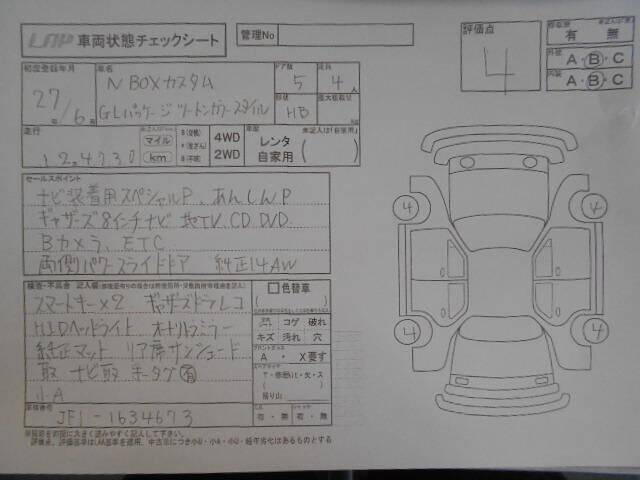 LAP 車両状態チェックシート
管理No
評価点
4
有 無
外装 A・B・C
内装 A・B・C
初度登録年月
27年/6月
車名
N BOXカスタム
GLパッケージ ツートンカラースタイル
ドア数
5
定員
4人
形状
HB
最大積載量
走行
124,730
マイル
km
4WD
2WD
車歴
未記入は「自家用」
レンタ
自家用
セールスポイント
ナビ装着用スペシャルP、あんしんP
ギャザーズ8インチナビ 地TV、CD、DVD
Bカメラ、ETC
両側パワースライドドア 純正14AW
スマートキー×2 ギャザーズドラレコ
HIDヘッドライト オートリトラミラー
純正マット リア席サンシェード
取 ナビ取 キータグ 有
小A
色替車
コゲ 破れ
キズ 汚れ 穴
フロントガラス
A ・ X要す
有・無 有・無
車台番号
JF1-1634673
4
4
4
4